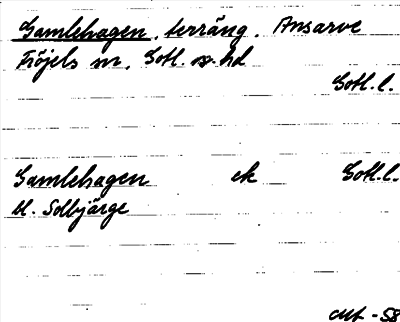 Gamlehagen, terräng, Ansarve
Fröjels sn, Gotl. s. hd
Gotl. l.
Gamlehagen ek Gotl. l.
bl. Solbjärge
-58